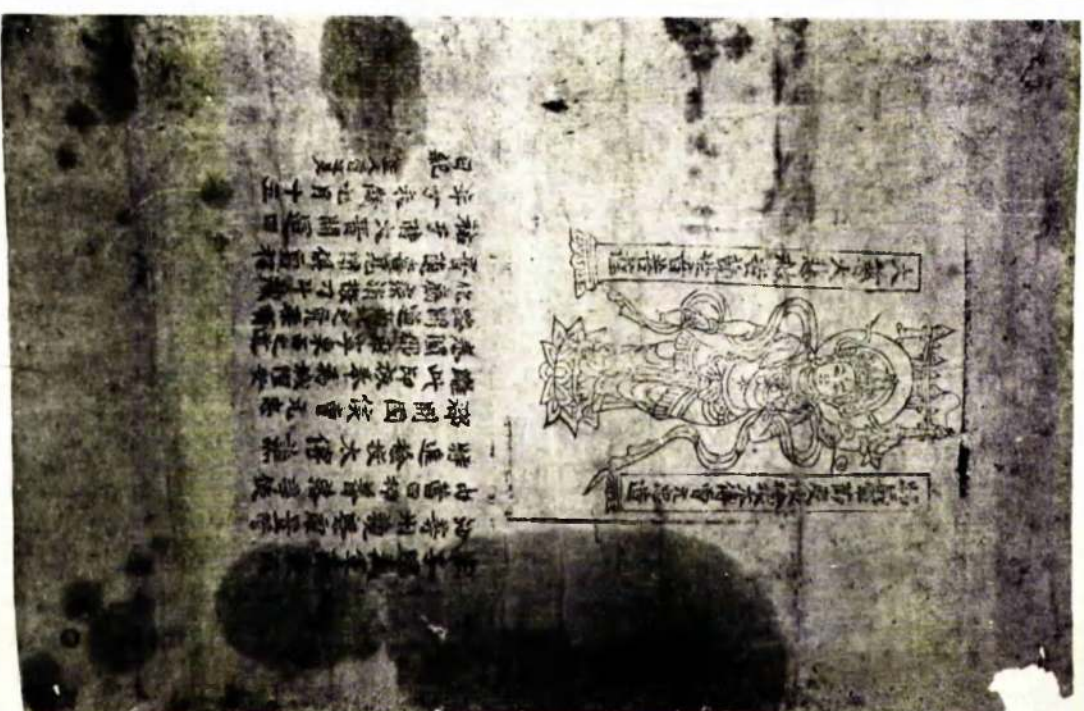 歸義軍節度使檢校太傅曹元忠造
大慈大悲救苦觀世音菩薩
弟子歸義軍節度瓜
沙等州觀察處置管
內營田押蕃落等使
特進檢校太傅譙
郡開國侯曹元忠
雕此印板奉為城隍安
泰闔郡康寧東西之道
路開通南北之凶渠順
化勵疾消散刁斗藏
音隨喜見聞俱霑福
祐于時大晉開運四
年丁未歲七月十五
日紀 匠人雷延美